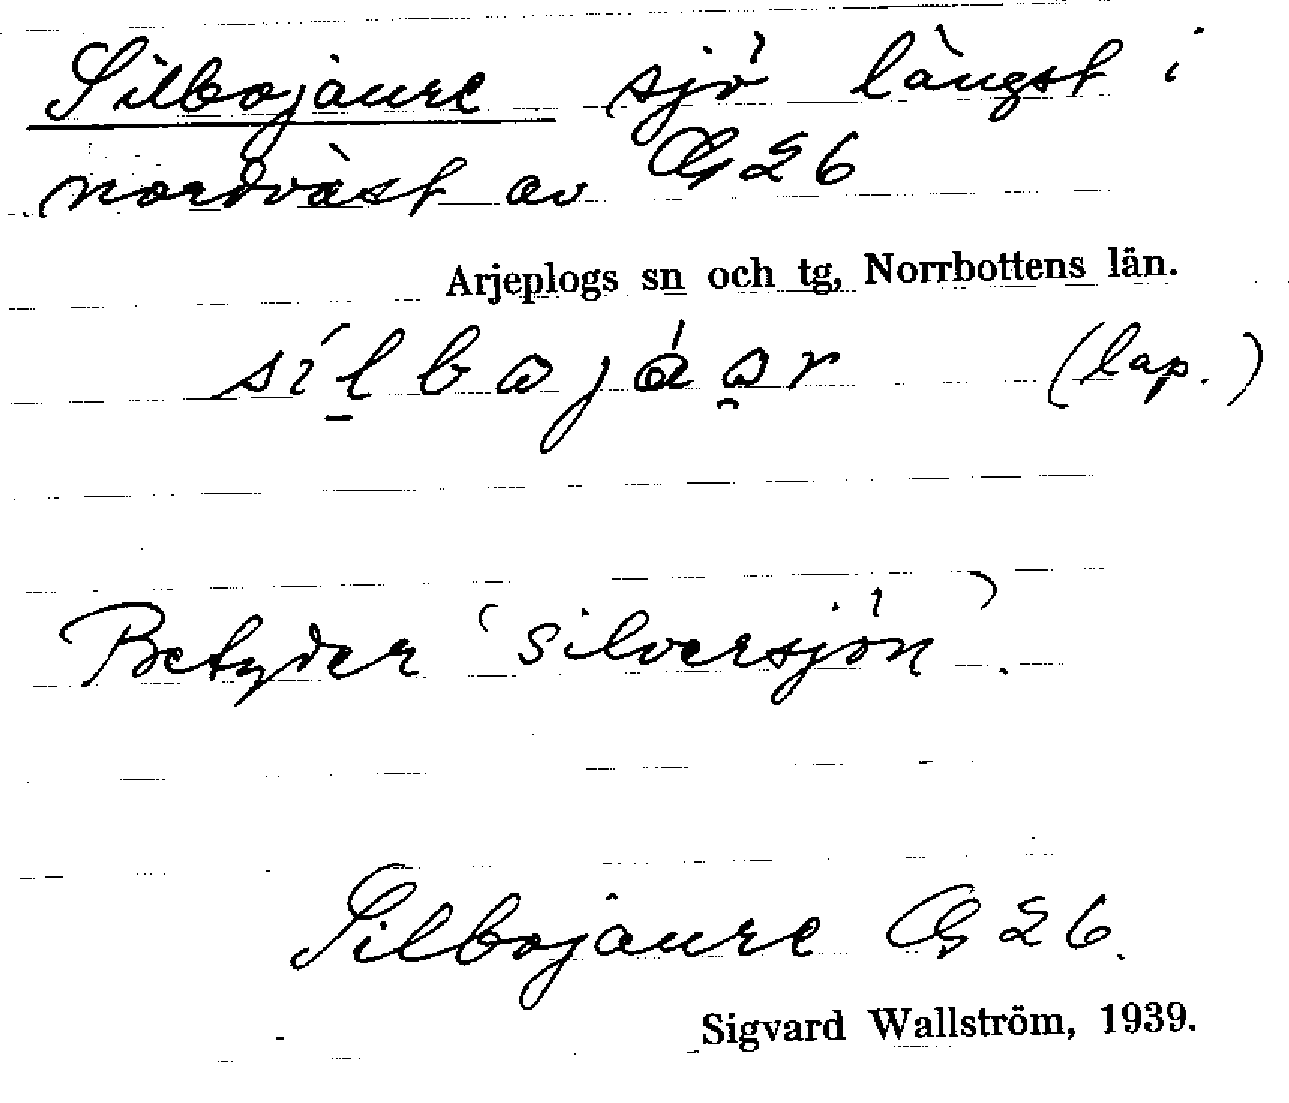 Silbojaure sjö längst i
nordväst av G 26
Arjeplogs sn och tg, Norrbottens län.
síl̠bɷjáɷ̯r (lap.)
Betyder 'silversjön'.
Silbojaure G 26.
Sigvard Wallström, 1939.